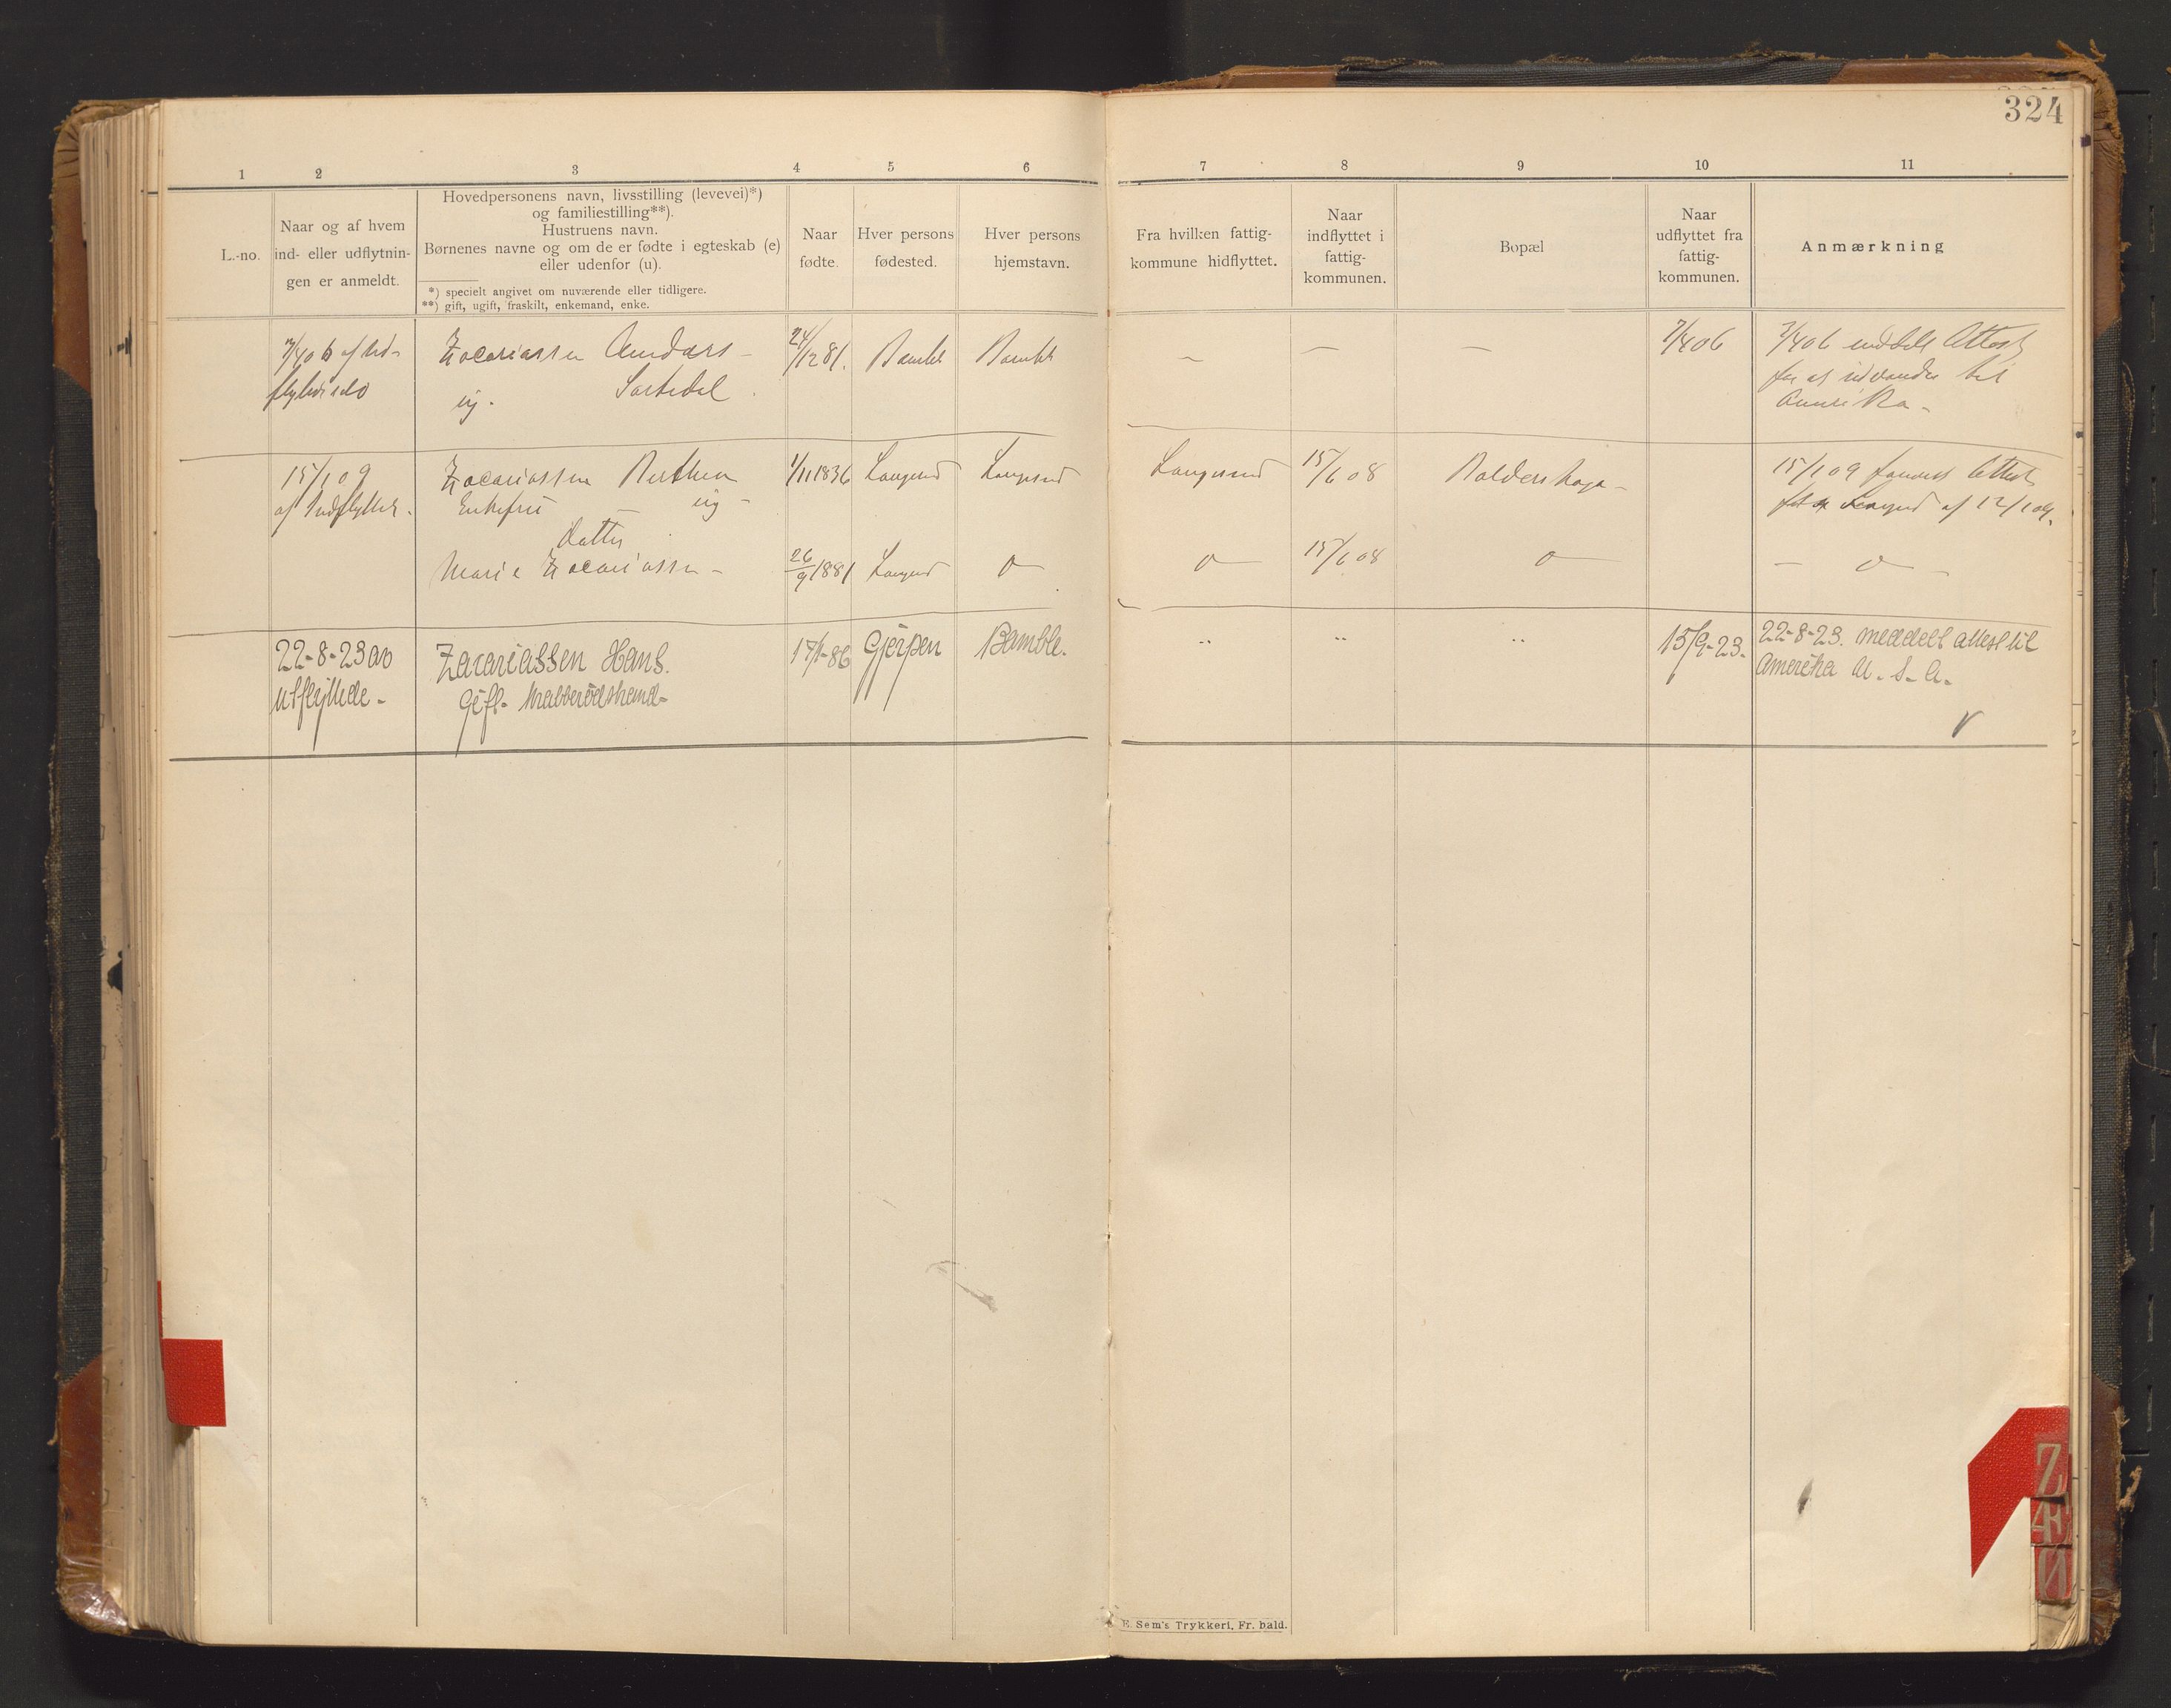 324
1 2 3 4 5 6 7 8 9 10 11
L.-no.
Naar og af hvem
ind- eller udflytnin-
gen er anmeldt.
Hovedpersonens navn, livsstilling (levevei)*)
og familiestilling**).
Hustruens navn.
Børnenes navne og om de er fødte i egteskab (e)
eller udenfor (u).
*) specielt angivet om nuværende eller tidligere.
**) gift, ugift, fraskilt, enkemand, enke.
Naar
fødte.
Hver persons
fødested.
Hver persons
hjemstavn.
Fra hvilken fattig-
kommune hidflyttet.
Naar
indflyttet i
fattig-
kommunen.
Bopæl
Naar
udflyttet fra
fattig-
kommunen.
Anmærkning
7/4 06 af ud-
flytteren
Zacariassen Anders
ug.
24/12 81.
Bamble
Bamble
—
—
—
7/4 06
7/4 06 meddelt Attest
for at udvandre til
Amerika -
15/1 09
af Indflytter.
Zacariassen Berthea
Enkefru — ug -
1/11 1836
Langesund
Langesund
Langesund
15/6 08
15/1 09 Attest
Langesund af 12/1 09.
datter
Marie Zacariassen -
26/9 1881
Langesund
15/6 08
22-8-23 av
utflyttede -
Zacariassen Hans.
Gift.
Gjerpen
Bamble.
15/9-23.
22-8-23. meddelt attest til
Amerika U. S. A.
E. Sem's Trykkeri, Fr. hald.
Z
Æ